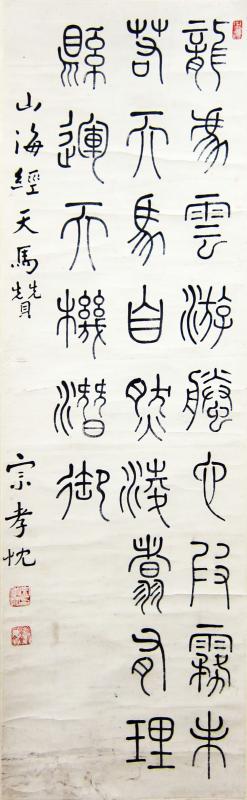 龍馮雲游螣它叚霧未
若天馬自然淩翥有理
縣運天機潛御
山海經天馬贊 宗孝忱